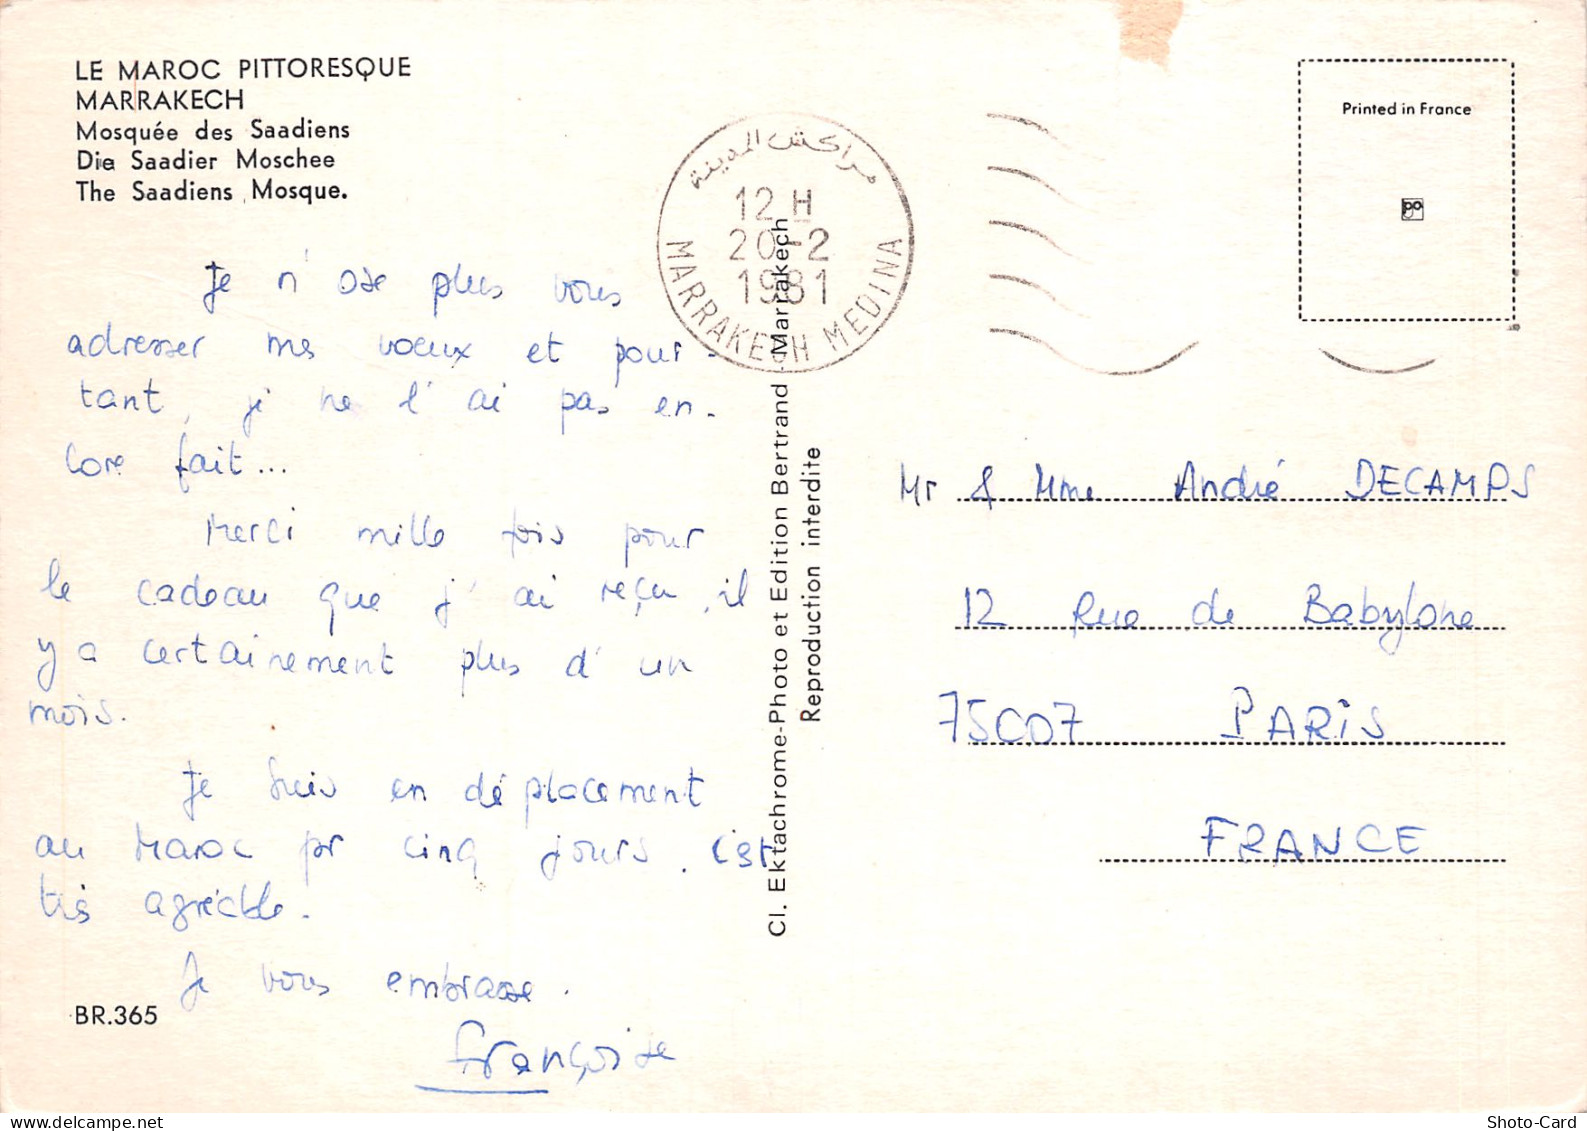 LE MAROC PITTORESQUE
MARRAKECH
Mosquée des Saadiens
Die Saadier Moschee
The Saadiens Mosque.
Je n'ose plus vous
adresser mes voeux et pour-
tant, je ne l'ai pas en-
core fait...
Merci mille fois pour
le cadeau que j'ai reçu, il
y a certainement plus d'un
mois.
Je suis en déplacement
au Maroc pr cinq jours, c'est
très agréable.
Je vous embrasse.
Françoise
BR.365
مراكش المدينة
12 H
20-2
1981
MARRAKECH MEDINA
Cl. Ektachrome-Photo et Edition Bertrand - Marrakech
Reproduction interdite
Printed in France
Mr & Mme André DECAMPS
12 Rue de Babylone
75007 PARIS
FRANCE
delcampe.net
Shoto-Card